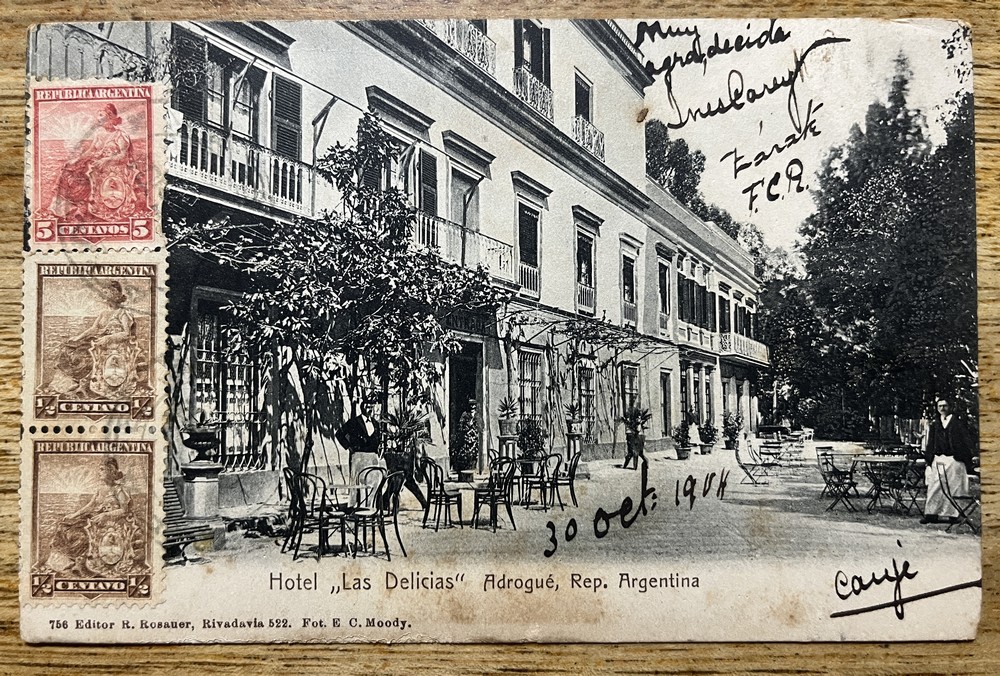 Muy
agradecida
Ines Carey
Zarate
F.C.R.
REPUBLICA ARGENTINA
5 CENTAVOS 5
REPUBLICA ARGENTINA
½ CENTAVO ½
REPUBLICA ARGENTINA
½ CENTAVO ½
30 Oct: 1904
Hotel „Las Delicias" Adrogué, Rep. Argentina
Canje
756 Editor R. Rosauer, Rivadavia 522. Fot. E C. Moody.